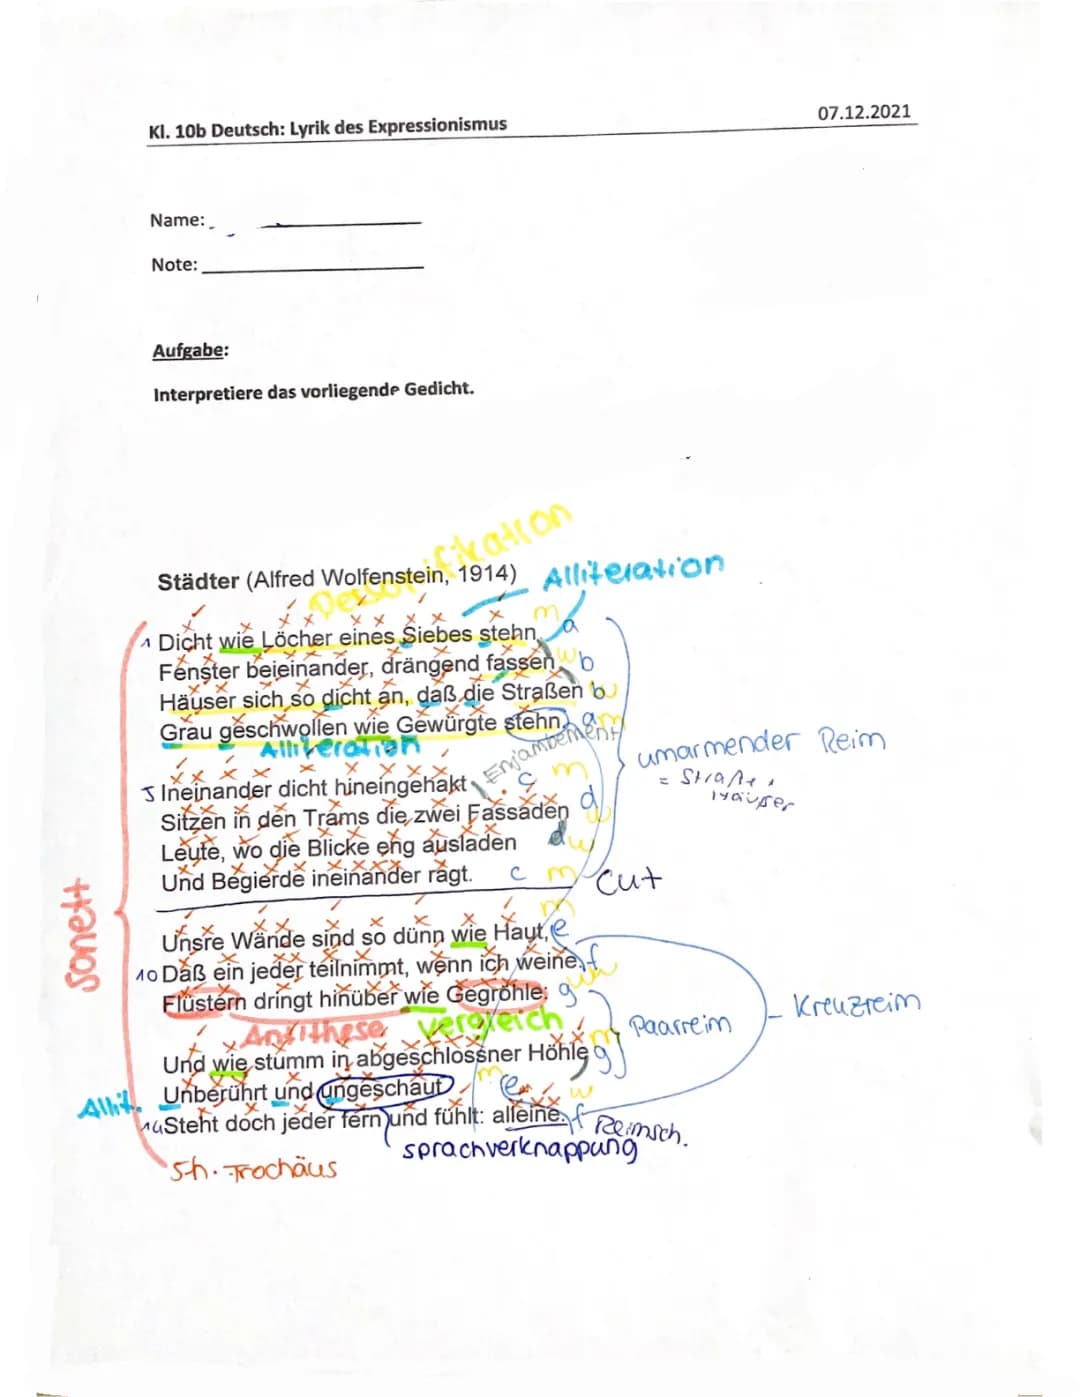 Kl. 10b Deutsch: Lyrik des Expressionismus
07.12.2021
Name:
Note:
Aufgabe:
Interpretiere das vorliegende Gedicht.
Personifikation
Städter (Alfred Wolfenstein, 1914)
Alliteration
1 Dicht wie Löcher eines Siebes stehn, m a
Fenster beieinander, drängend fassen w b
Häuser sich so dicht an, daß die Straßen b w
Grau geschwollen wie Gewürgte stehn. a m
Alliteration
Enjambement
umarmender Reim
= Straße,
Häuser
5 Ineinander dicht hineingehakt c m
Sitzen in den Trams die zwei Fassaden d w
Leute, wo die Blicke eng ausladen d w
Und Begierde ineinander ragt. c m
Cut
Sonett
Unsre Wände sind so dünn wie Haut, e m
10 Daß ein jeder teilnimmt, wenn ich weine, f w
Flüstern dringt hinüber wie Gegröhle: g w
Antithese
Vergleich
Paarreim
Kreuzreim
Und wie stumm in abgeschlossner Höhle g
Allit. Unberührt und ungeschaut m e w
14 Steht doch jeder fern und fühlt: alleine. f
Reimsch.
sprachverknappung
5h. Trochäus